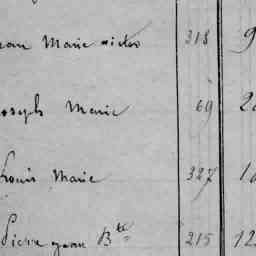 ean Marie victor 318 9
oseph Marie 69 2
Louis Marie 327 1
Pierre jean Bte 215 12